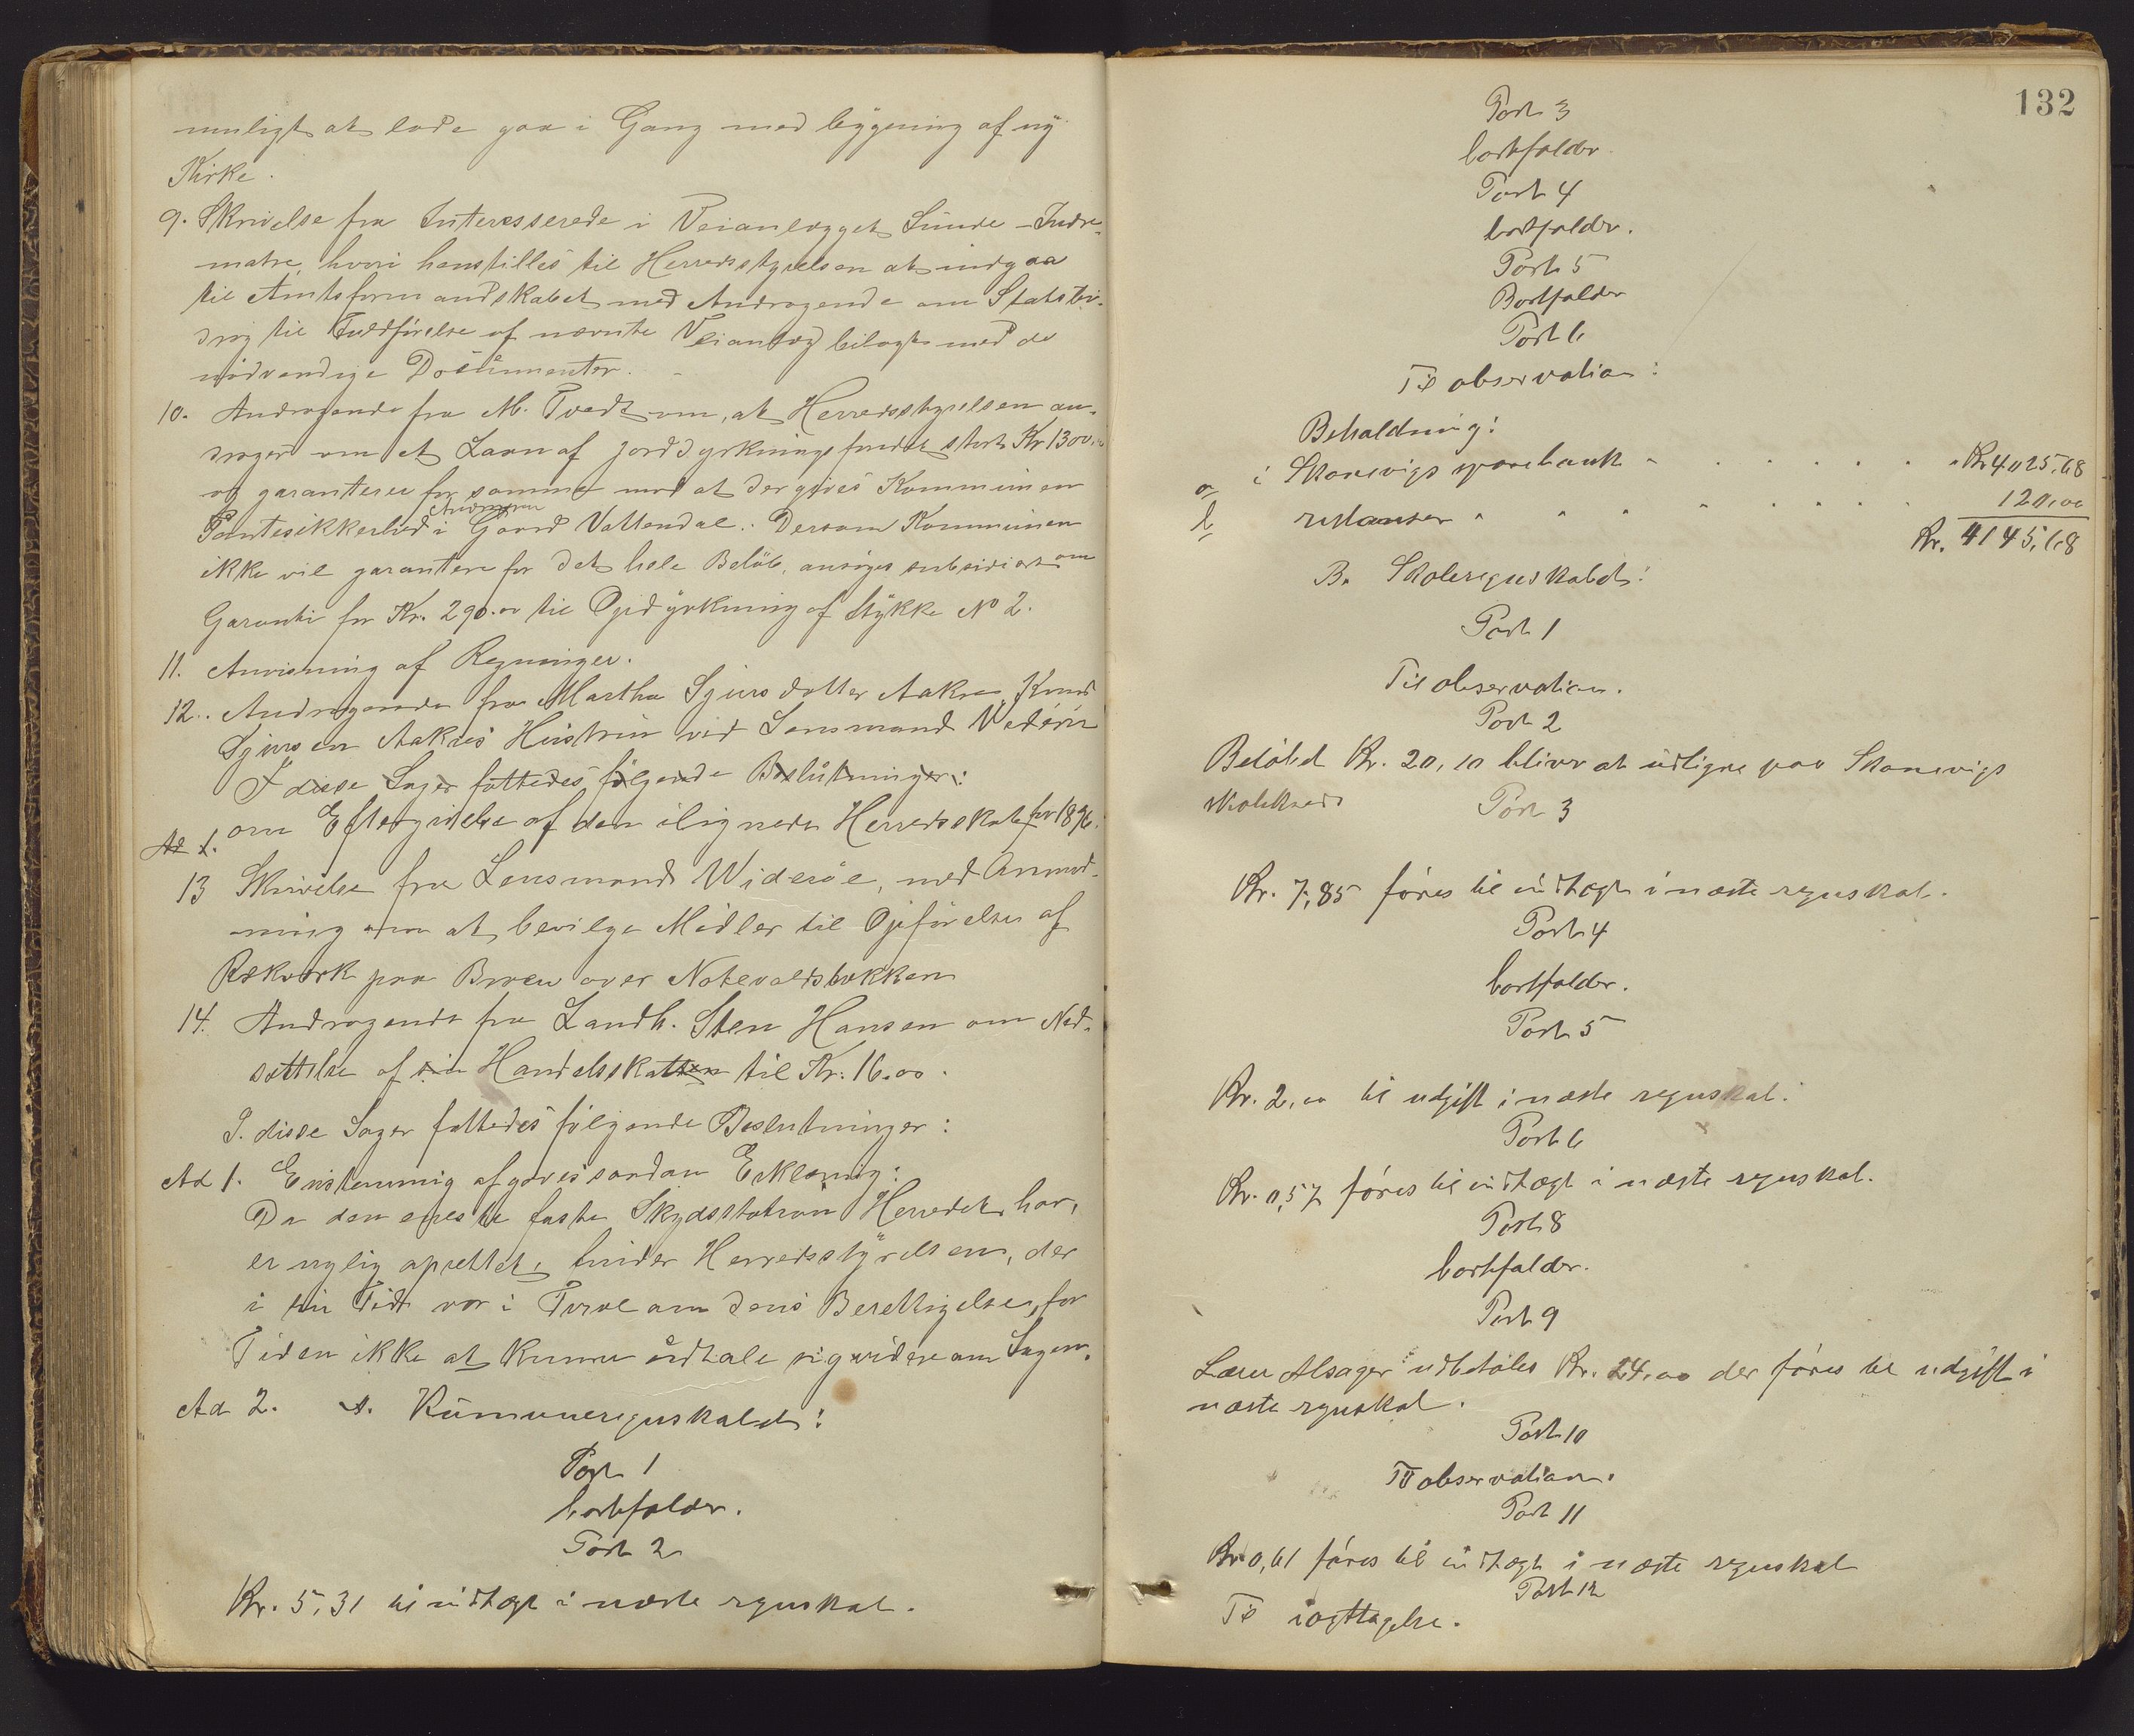 muligt at lade gaa i Gang med byggning af ny
Kirke.
9. Skrivelse fra Interesserede i Veianlægget Sunde - Indre-
matre, hvori henstilles til Herredsstyrelsen at indgaa
til Amtsformandskabet med Andragende om Statsbi-
drag til Fuldförelse af nævnte Veianlæg bilagt med de
nödvendige Documenter. -
10. Andragende fra M. Tvedt om, at Herredsstyrelsen an-
drager om et Laan af jorddyrkningsfondet stort Kr 1300,00
og garanterer for samme mod at der gives Kommunen
Pantesikkerhed i Gaard Vattendal. Dersom Kommunen
ikke vil garantere for det hele Belöb, ansöges subsidiært om
Garanti for Kr. 290.00 til Opdyrkning af Stykke No 2.
11. Anvisning af Regninger.
12. Andragende fra Martha Sjursdatter Aakre, Knud
Sjursen Aakres Hustru ved Lensmand Vederöe
I disse Sager fattedes fölgende Beslutninger:
Ad 1. om Eftergivelse af den ilignede Herredsskat for 1896.
13 Skrivelse fra Lensmand Wideröe, med Anmod-
ning om at bevilge Midler til Opförelse af
Rækværk paa Broen over Notevoldsbækken
14. Andragende fra Landh. Sten Hansen om Ned-
sættelse af sin Handelsskatten til Kr. 16.00.
I disse Sager fattedes fölgende Beslutninger:
Ad 1. Enstemmig afgaves saadan Erklæring:
Da den eneste faste Skydsstation Herredet har,
er nylig oprettet, finder Herredsstyrelsen, der
i sin Tid var i Tvivl om dens Berettigelse, for
Tiden ikke at kunne udtale sig videre om Sagen.
Ad 2. A. Kommuneregnskabet:
Post 1
bortfalder.
Post 2
Kr. 5,31 til indtægt i næste regnskab.
132
Post 3
bortfalder
Post 4
bortfalder.
Post 5
Bortfalder
Post 6
Til observation:
Behaldning:
a, i Skonevigs sparebank - . . . . . . Kr 4025,68
b, restanser " " " " . . . 120,00
Kr. 4145,68
B. Skoleregnskabet:
Post 1
Til observation.
Post 2
Belöbet Kr. 20,10 bliver at udligne paa Skonevigs
skolekreds
Post 3
Kr. 7,85 föres til indtægt i næste regnskab.
Post 4
bortfalder.
Post 5
Kr. 2,00 til udgift i næste regnskab.
Post 6
Kr. 0,57 föres til indtægt i næste regnskab.
Post 8
bortfalder.
Post 9
Lærer Alsager udbetales Kr. 24,00 der föres til udgift i
næste regnskab.
Post 10
Til observation.
Post 11
Kr 0,61 föres til indtægt i næste regnskab
Post 12
Til iagttagelse.